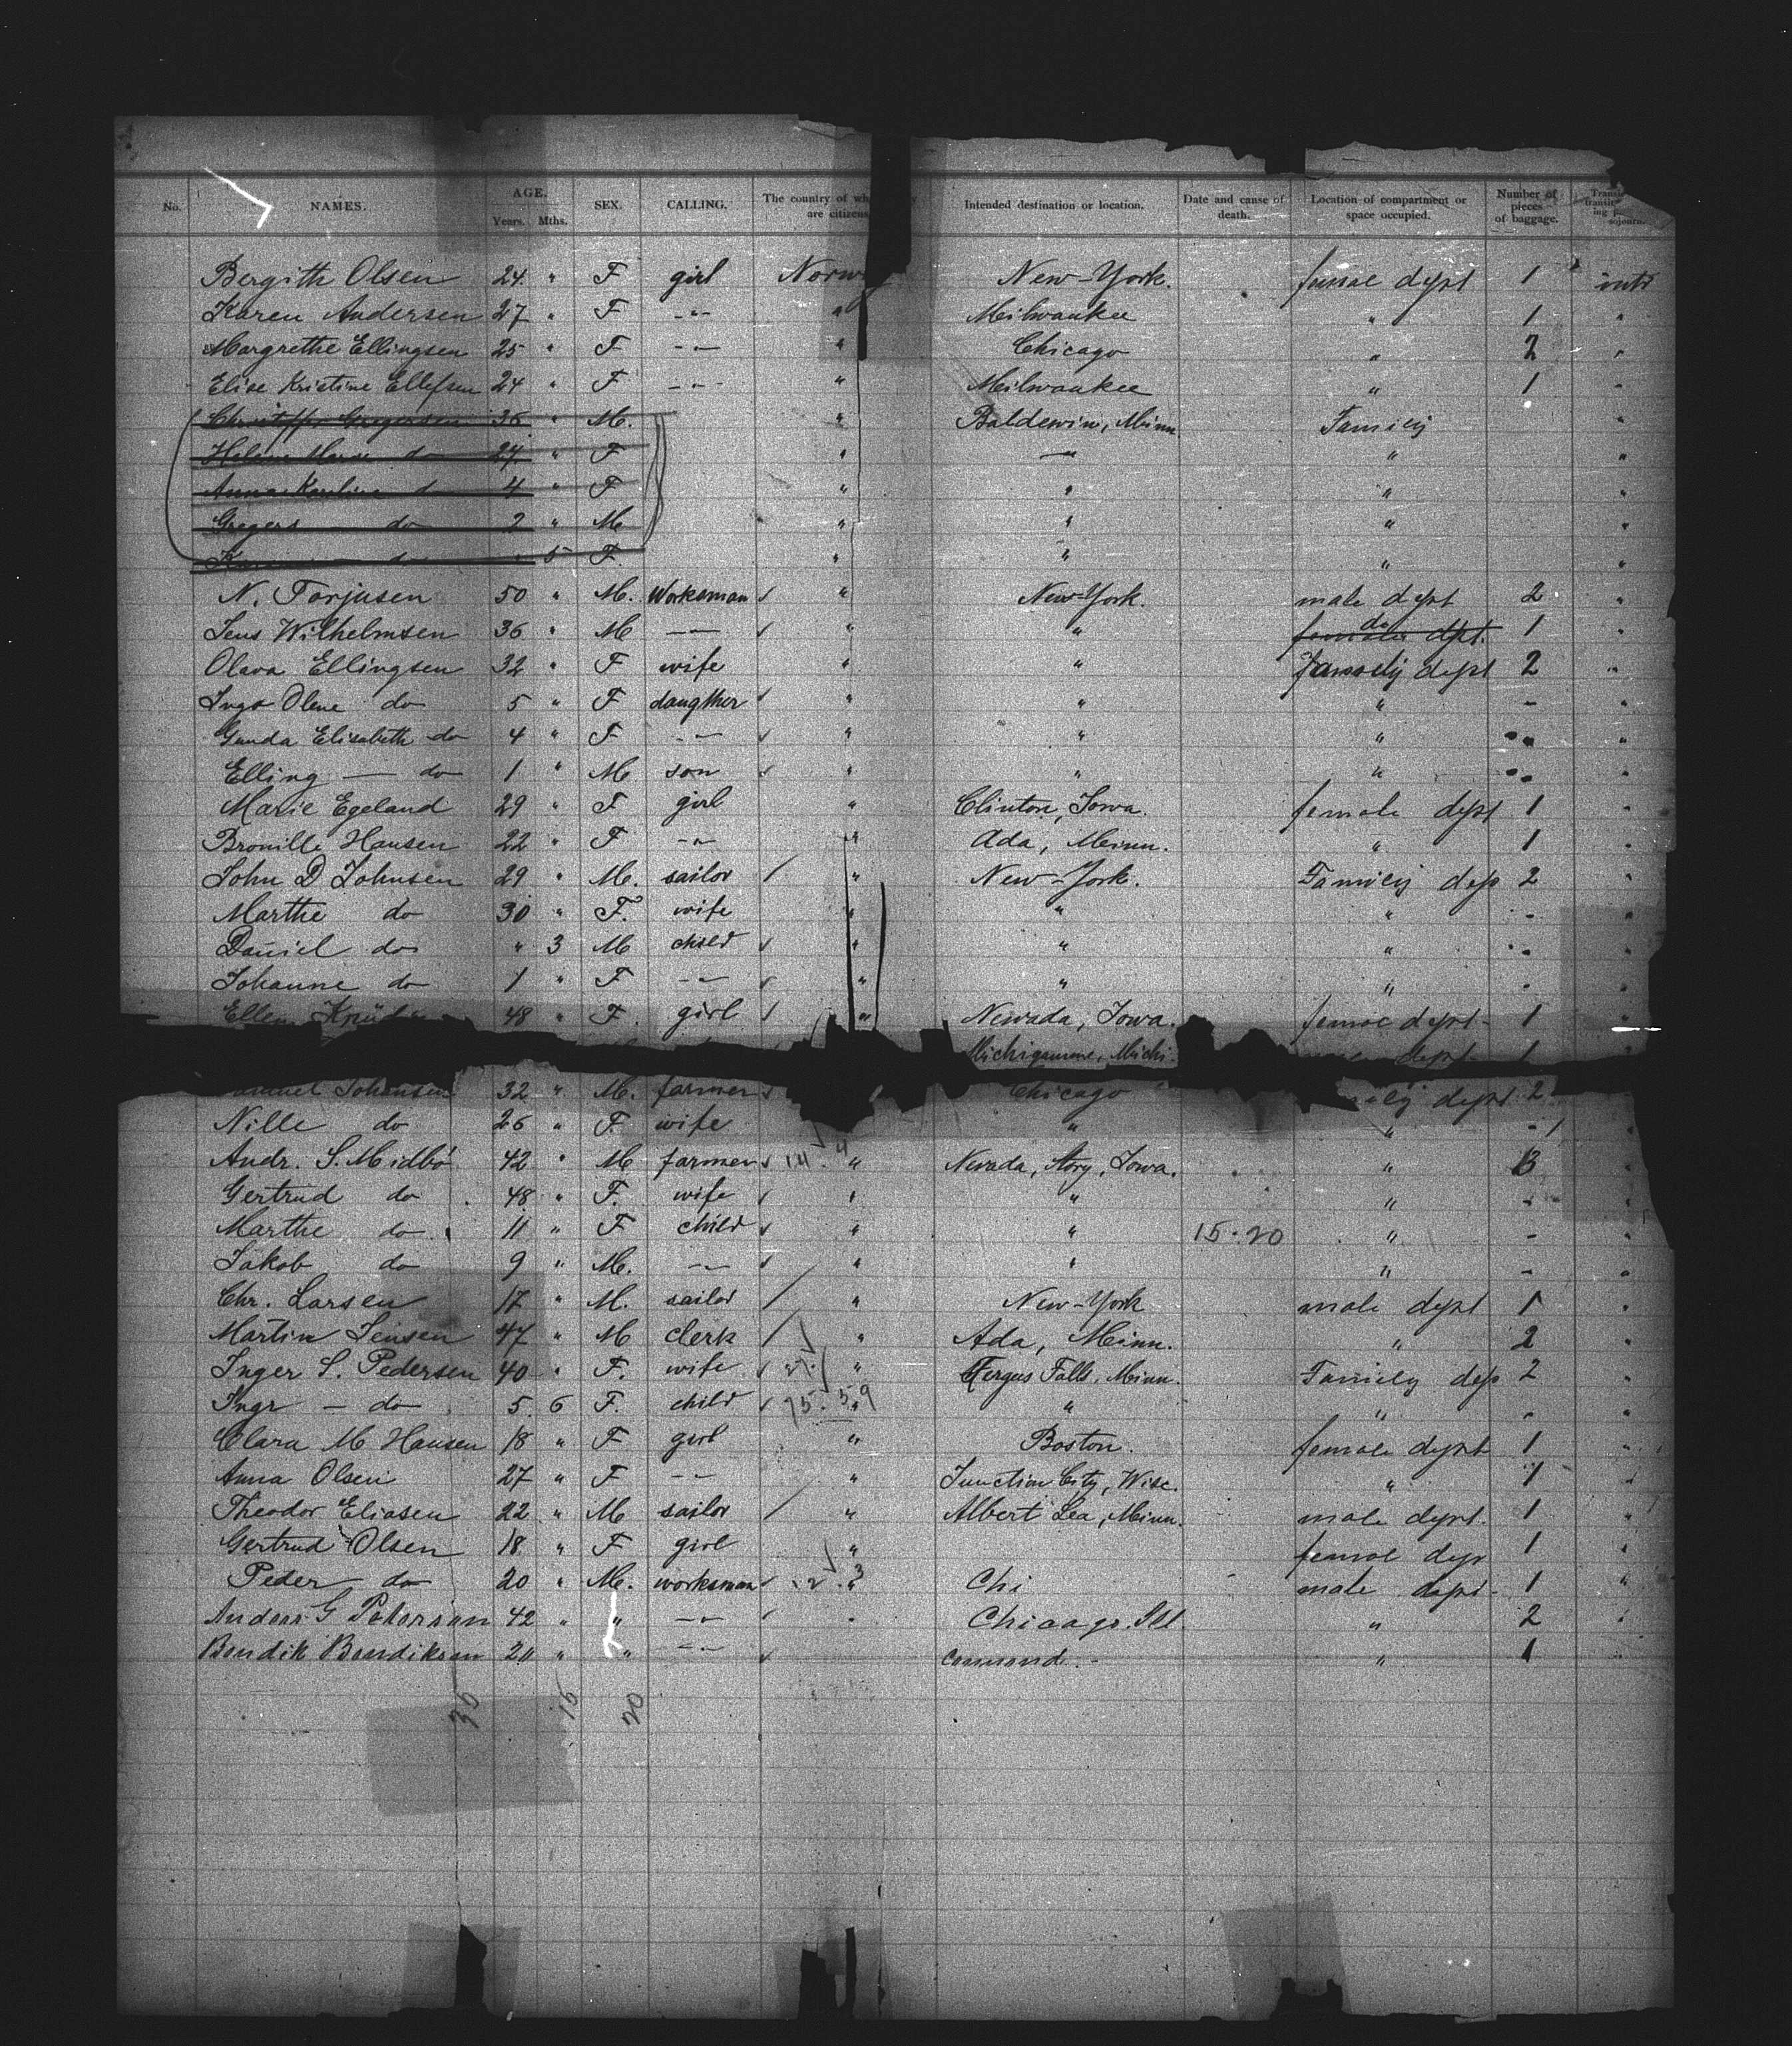 No. NAMES. AGE. Years. Mths. SEX. CALLING. The country of wh are citizens Intended destination or location. Date and cause of death. Location of compartment or space occupied. Number of pieces of baggage. Trans transit ing p sojourn.
Bergith Olsen 24 " F girl Norw New-York. femal dept 1 intr
Karen Andersen 27 " F -"- " Milwaukee " 1 "
Margrethe Ellingsen 25 " F -"- " Chicago " 2 "
Elise Kristine Ellefsen 24 " F -"- " Milwaukee " 1 "
Gregersen 36 " M. " Baldewin, Minn. Family "
Helene Marie do 24 " F " " " "
Anna Karoline do 4 " F " " " "
Gregers do 2 " M " " " "
do " 5 F. " " " "
N. Torjusen 50 " M. Worksman " New-York. male dept 2 "
Jens Wilhelmsen 36 " M -"- " " female dpt. do 1 "
Olava Ellingsen 32 " F wife " " Family dept 2 "
Inga Olene do 5 " F daugther " " " - "
Gunda Elisabeth do 4 " F -"- " " " " "
Elling — do 1 " M son " " " " "
Marie Egeland 29 " F girl " Clinton, Iowa. female dept 1 "
Bronille Hansen 22 " F -"- " Ada, Minn. " 1 "
John D Johnsen 29 " M. sailor " New-York. Family dep 2 "
Marthe do 30 " F. wife " " " - "
Daniel do " 3 M child " " " - "
Johanne do 1 " F -"- " " " - "
Ellen 48 " F. girl " Nevada, Iowa. femal dept- 1 "
Michigamme, Michi. dept- 1
Johansen 32 " M. farmer Chicago ily dept 2
Nille do 26 " F. wife " " - "
Andr. S. Midbö 42 " M farmer 14. 4 " Nevada, Story, Iowa. " 3 "
Gertrud do 48 " F. wife " " " - "
Marthe do 11 " F child " " 15-20 " - "
Jakob do 9 " M. -"- " " " - "
Chr. Larsen 17 " M. sailor " New-York male dept 1 "
Martin Jensen 47 " M clerk " Ada, Minn. " 2 "
Inger S. Pedersen 40 " F. wife " Fergus Falls, Minn. Family dep 2 "
Ingr — do 5 6 F. child 75. 59 " " " - "
Clara M Hansen 18 " F girl " Boston. female dept 1 "
Anna Olsen 27 " F -"- " Junction City, Wisc. " 1 "
Theodor Eliasen 22 " M sailor " Albert Lea, Minn. male dept. 1 "
Gertrud Olsen 18 " F girl " femal dep 1 "
Peder do 20 " M. worksman 2 . 3 " Chi male dept- 1 "
Anders G Petersen 42 " " -"- " Chicago. Ill. " 2 "
Bendik Bendiksen 20 " " -"- " 1
36 15 20